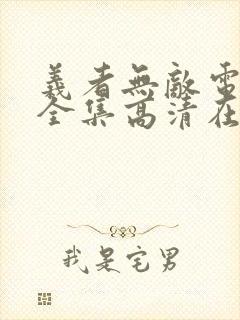 義者無敵電
全集高清在
我是宅男